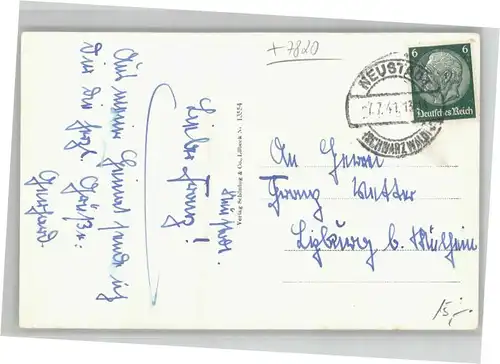 + 7820
NEUSTADT
7.7.41.13
(SCHWARZWALD)
6 6
Deutsches Reich
Lieber Franz!
Aus meiner Heimat sende ich
Dir die herzl. Grüße.
Gerhard
Verlag Schöning & Co., Lübeck
An Herrn
Franz Vetter
b. Mülheim
15,-